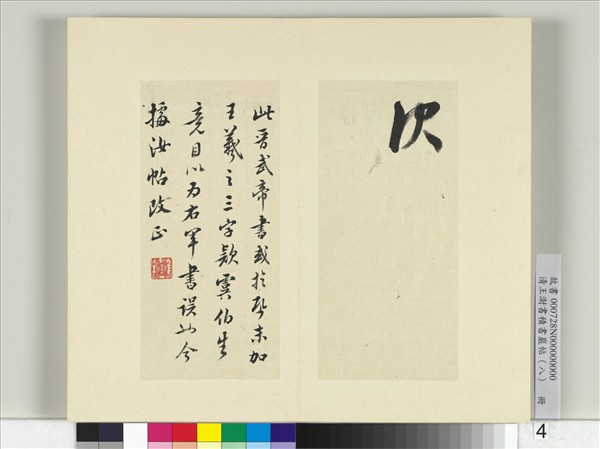 此晉武帝書或於帋末加
王羲之三字款虞伯生
竟目以為右軍書誤也今
據汝帖改正
故書 000728N000000000
清王澍書積書巖帖（八） 冊
4